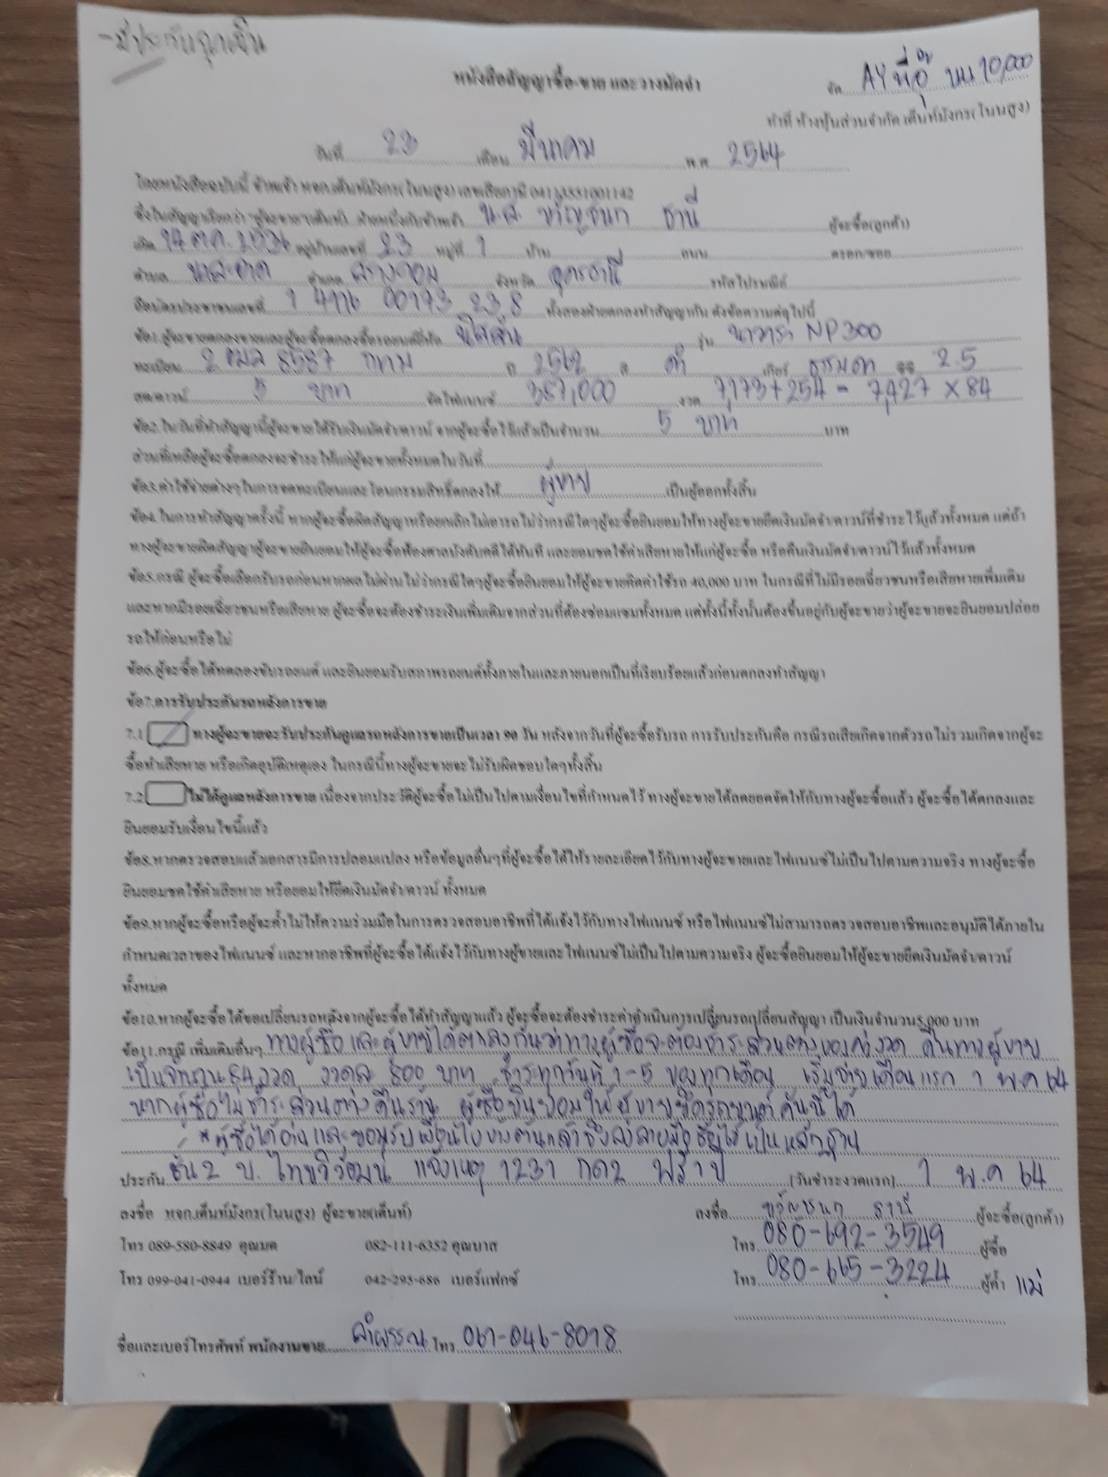 -มีประกันฉุกเฉิน
หนังสือสัญญาซื้อ-ขาย และวางมัดจำ
จัด AY พี่อุ๊ บน 10,000
ทำที่ ห้างหุ้นส่วนจำกัด เต็นท์มังกร(โนนสูง)
วันที่ 23 เดือน มีนาคม พ.ศ. 2564
โดยหนังสือฉบับนี้ ข้าพเจ้า หจก.เต็นท์มังกร(โนนสูง) เลขเสียภาษี 0413555001142
ซึ่งในสัญญาเรียกว่า "ผู้จะขาย"(เต็นท์) ฝ่ายหนึ่งกับข้าพเจ้า น.ส. ขวัญชนก ธานี ผู้จะซื้อ(ลูกค้า)
เกิด 14 ต.ค. 2536 อยู่บ้านเลขที่ 23 หมู่ที่ 1 บ้าน ถนน ตรอก/ซอย
ตำบล นาสะอาด อำเภอ สร้างคอม จังหวัด อุดรธานี รหัสไปรษณีย์
ถือบัตรประชาชนเลขที่ 1 4196 00173 23 8 ทั้งสองฝ่ายตกลงทำสัญญากัน ดังข้อความต่อไปนี้
ข้อ1.ผู้จะขายตกลงขายและผู้จะซื้อตกลงซื้อรถยนต์ยี่ห้อ นิสสัน รุ่น นาวารา NP300
ทะเบียน 2 ฒล 8587 กทม ปี 2562 สี ดำ เกียร์ ธรรมดา ซีซี 2.5
สด/ดาวน์ 5 บาท จัดไฟแนนซ์ 387,000 งวด 7,173+254 = 7,427 x 84
ข้อ2.ในวันที่ทำสัญญานี้ผู้จะขายได้รับเงินมัดจำ/ดาวน์ จากผู้จะซื้อไว้แล้วเป็นจำนวน 5 บาท บาท
ส่วนที่เหลือผู้จะซื้อตกลงจะชำระให้แก่ผู้จะขายทั้งหมดในวันที่
ข้อ3.ค่าใช้จ่ายต่างๆในการจดทะเบียนและโอนกรรมสิทธิ์ตกลงให้ ผู้ขาย เป็นผู้ออกทั้งสิ้น
ข้อ4.ในการทำสัญญาครั้งนี้ หากผู้จะซื้อผิดสัญญาหรือยกเลิกไม่เอารถไม่ว่ากรณีใดๆผู้จะซื้อยินยอมให้ทางผู้จะขายยึดเงินมัดจำ/ดาวน์ที่ชำระไว้แล้วทั้งหมด แต่ถ้า
ทางผู้จะขายผิดสัญญาผู้จะขายยินยอมให้ผู้จะซื้อฟ้องศาลบังคับคดีได้ทันที และยอมชดใช้ค่าเสียหายให้แก่ผู้จะซื้อ หรือคืนเงินมัดจำ/ดาวน์ไว้แล้วทั้งหมด
ข้อ5.กรณี ผู้จะซื้อเลือกรับรถก่อนหากผลไม่ผ่านไม่ว่ากรณีใดๆผู้จะซื้อยินยอมให้ผู้จะขายคิดค่าใช้รถ 40,000 บาท ในกรณีที่ไม่มีรอยเฉี่ยวชนหรือเสียหายเพิ่มเติม
และหากมีรอยเฉี่ยวชนหรือเสียหาย ผู้จะซื้อจะต้องชำระเงินเพิ่มเติมจากส่วนที่ต้องซ่อมแซมทั้งหมด แต่ทั้งนี้ทั้งนั้นต้องขึ้นอยู่กับผู้จะขายว่าผู้จะขายจะยินยอมปล่อย
รถให้ก่อนหรือไม่
ข้อ6.ผู้จะซื้อได้ทดลองขับรถยนต์ และยินยอมรับสภาพรถยนต์ทั้งภายในและภายนอกเป็นที่เรียบร้อยแล้วก่อนตกลงทำสัญญา
ข้อ7.การรับประกันรถหลังการขาย
7.1 ทางผู้จะขายจะรับประกันดูแลรถหลังการขายเป็นเวลา 90 วัน หลังจากวันที่ผู้จะซื้อรับรถ การรับประกันคือ กรณีรถเสียเกิดจากตัวรถไม่รวมเกิดจากผู้จะ
ซื้อทำเสียหาย หรือเกิดอุบัติเหตุเอง ในกรณีนี้ทางผู้จะขายจะไม่รับผิดชอบใดๆทั้งสิ้น
7.2 ไม่ได้ดูแลหลังการขาย เนื่องจากประวัติผู้จะซื้อไม่เป็นไปตามเงื่อนไขที่กำหนดไว้ ทางผู้จะขายได้ลดยอดจัดให้กับทางผู้จะซื้อแล้ว ผู้จะซื้อได้ตกลงและ
ยินยอมรับเงื่อนไขนี้แล้ว
ข้อ8.หากตรวจสอบแล้วเอกสารมีการปลอมแปลง หรือข้อมูลอื่นๆที่ผู้จะซื้อได้ให้รายละเอียดไว้กับทางผู้จะขายและไฟแนนซ์ไม่เป็นไปตามความจริง ทางผู้จะซื้อ
ยินยอมชดใช้ค่าเสียหาย หรือยอมให้ยึดเงินมัดจำ/ดาวน์ ทั้งหมด
ข้อ9.หากผู้จะซื้อหรือผู้จะค้ำไม่ให้ความร่วมมือในการตรวจสอบอาชีพที่ได้แจ้งไว้กับทางไฟแนนซ์ หรือไฟแนนซ์ไม่สามารถตรวจสอบอาชีพและอนุมัติได้ภายใน
กำหนดเวลาของไฟแนนซ์ และหากอาชีพที่ผู้จะซื้อได้แจ้งไว้กับทางผู้ขายและไฟแนนซ์ไม่เป็นไปตามความจริง ผู้จะซื้อยินยอมให้ผู้จะขายยึดเงินมัดจำ/ดาวน์
ทั้งหมด
ข้อ10.หากผู้จะซื้อได้ขอเปลี่ยนรถหลังจากผู้จะซื้อได้ทำสัญญาแล้ว ผู้จะซื้อจะต้องชำระค่าดำเนินการเปลี่ยนรถ/เปลี่ยนสัญญา เป็นเงินจำนวน5,000 บาท
ข้อ11.กรณี เพิ่มเติมอื่นๆ ทางผู้ซื้อ และผู้ขายได้ตกลงกันว่าทางผู้ซื้อจะต้องชำระส่วนต่างของค่างวด คืนทางผู้ขาย
เป็นจำนวน 84 งวด งวดละ 800 บาท ชำระทุกวันที่ 1-5 ของทุกเดือน เริ่มจ่ายเดือนแรก 1 พ.ค 64
หากผู้ซื้อไม่ชำระส่วนต่างคืนร้าน ผู้ซื้อยินยอมให้ผู้ขายยึดรถยนต์คันนี้ได้
*ผู้ซื้อได้อ่านและยอมรับเงื่อนไขข้างต้นแล้วจึงลงลายมือชื่อไว้เป็นหลักฐาน
ประกัน ชั้น 2 บ. ไทยวิวัฒน์ แจ้งเหตุ 1231 กด 2 ฟรี 1 ปี (วันชำระงวดแรก) 1 พ.ค 64
ลงชื่อ หจก.เต็นท์มังกร(โนนสูง) ผู้จะขาย(เต็นท์)
ลงชื่อ ขวัญชนก ธานี ผู้จะซื้อ(ลูกค้า)
โทร 089-580-8849 คุณบด 082-111-6352 คุณบาส
โทร 080-692-3549 ผู้ซื้อ
โทร 099-041-0944 เบอร์ร้าน/ไลน์ 042-295-686 เบอร์แฟกซ์
โทร 080-665-3224 ผู้ค้ำ แม่
ชื่อและเบอร์โทรศัพท์ พนักงานขาย ลำพรรณ โทร 061-046-8018